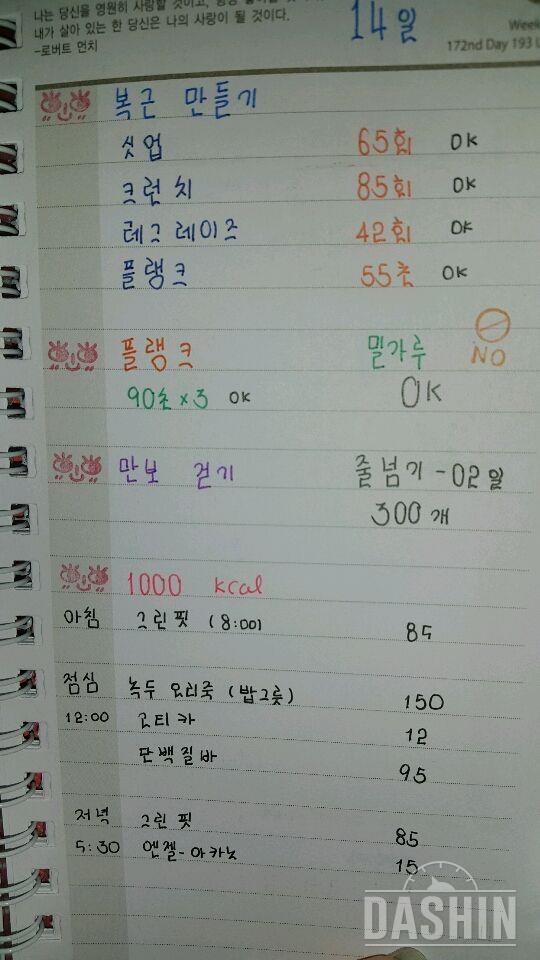 나는 당신을 영원히 사랑할 것이고,
내가 살아 있는 한 당신은 나의 사랑이 될 것이다.
-로버트 먼치
14일
Week
172nd Day 193
복근 만들기
싯업 65회 OK
크런치 85회 OK
레그레이즈 42회 OK
플랭크 55초 OK
플랭크 밀가루 NO
90초×3 OK OK
만보 걷기 줄넘기-02일
300개
1000 kcal
아침 그린핏 (8:00) 85
점심 녹두오리죽 (밥그릇) 150
12:00 고티카 12
단백질바 95
저녁 그린핏 85
5:30 엔젤-아카노 15
DASHIN